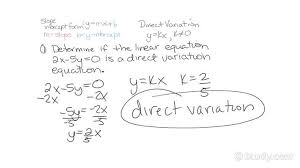 Slope
intercept form: (y=mx+b)
m=slope b=y-intercept
Direct Variation
y=Kx, K≠0
① Determine if the linear equation
2x-5y=0 is a direct variation
equation.
2x-5y=0
-2x -2x
-5y=-2x
-5 -5
y=2/5x
y=Kx K=2/5
direct variation
Study.com